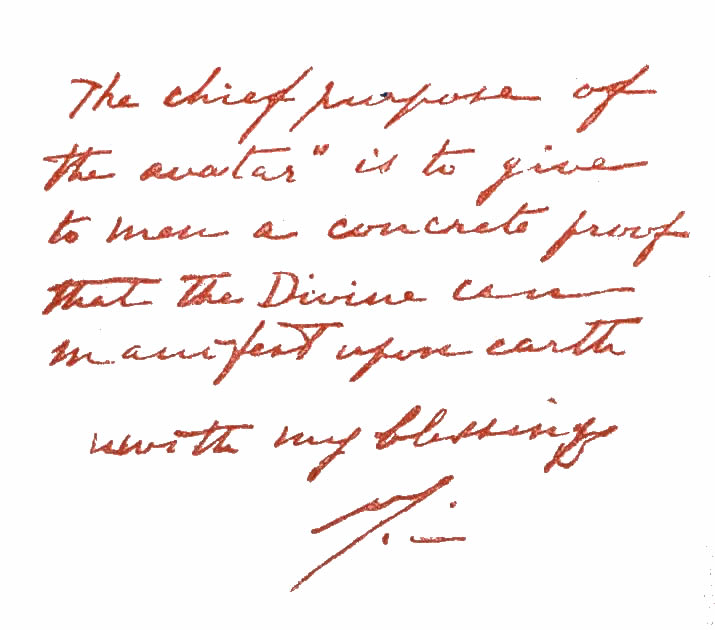 The chief purpose of
the avatar" is to give
to men a concrete proof
that the Divine can
manifest upon earth
with my blessings